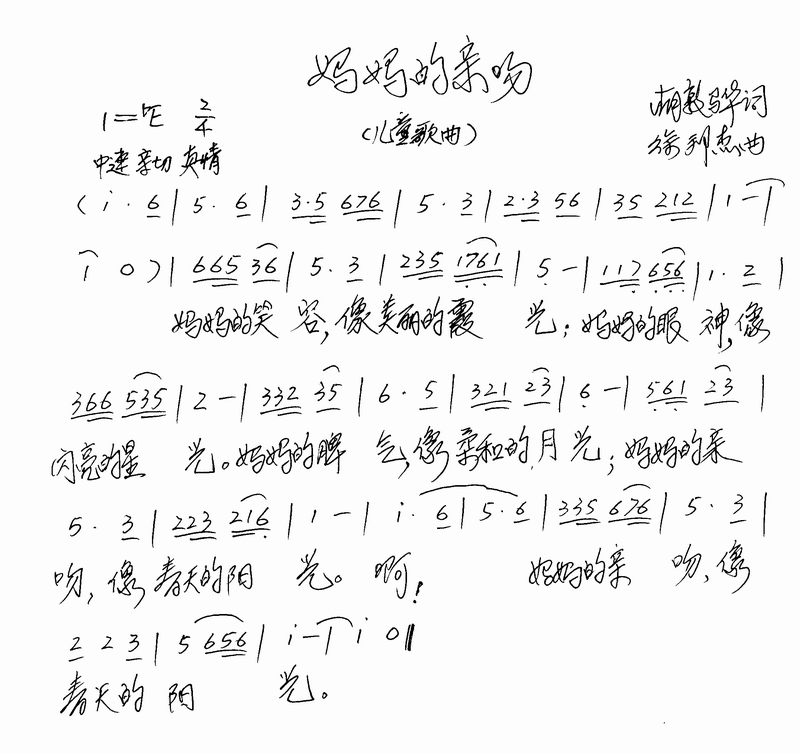 妈妈的亲吻
(儿童歌曲)
1=ᵇE 2/4
中速 亲切 真情
胡敦骅词
徐利杰曲
(i· 6 | 5· 6 | 3·5 676 | 5· 3 | 2·3 56 | 35 212 | 1 - |
1 0) | 665 36 | 5· 3 | 235 1761 | 5 - | 112 656 | 1· 2 |
妈妈的笑 容,像美丽的霞 光;妈妈的眼 神,像
366 535 | 2 - | 332 35 | 6· 5 | 321 23 | 6 - | 561 23 |
闪亮的星 光。妈妈的脾 气,像柔和的月光;妈妈的亲
5· 3 | 223 216 | 1 - | i· 6 | 5· 6 | 335 676 | 5· 3 |
吻,像春天的阳 光。啊! 妈妈的亲 吻,像
2 2 3 | 5 656 | i - | i 0 ‖
春天的 阳 光。